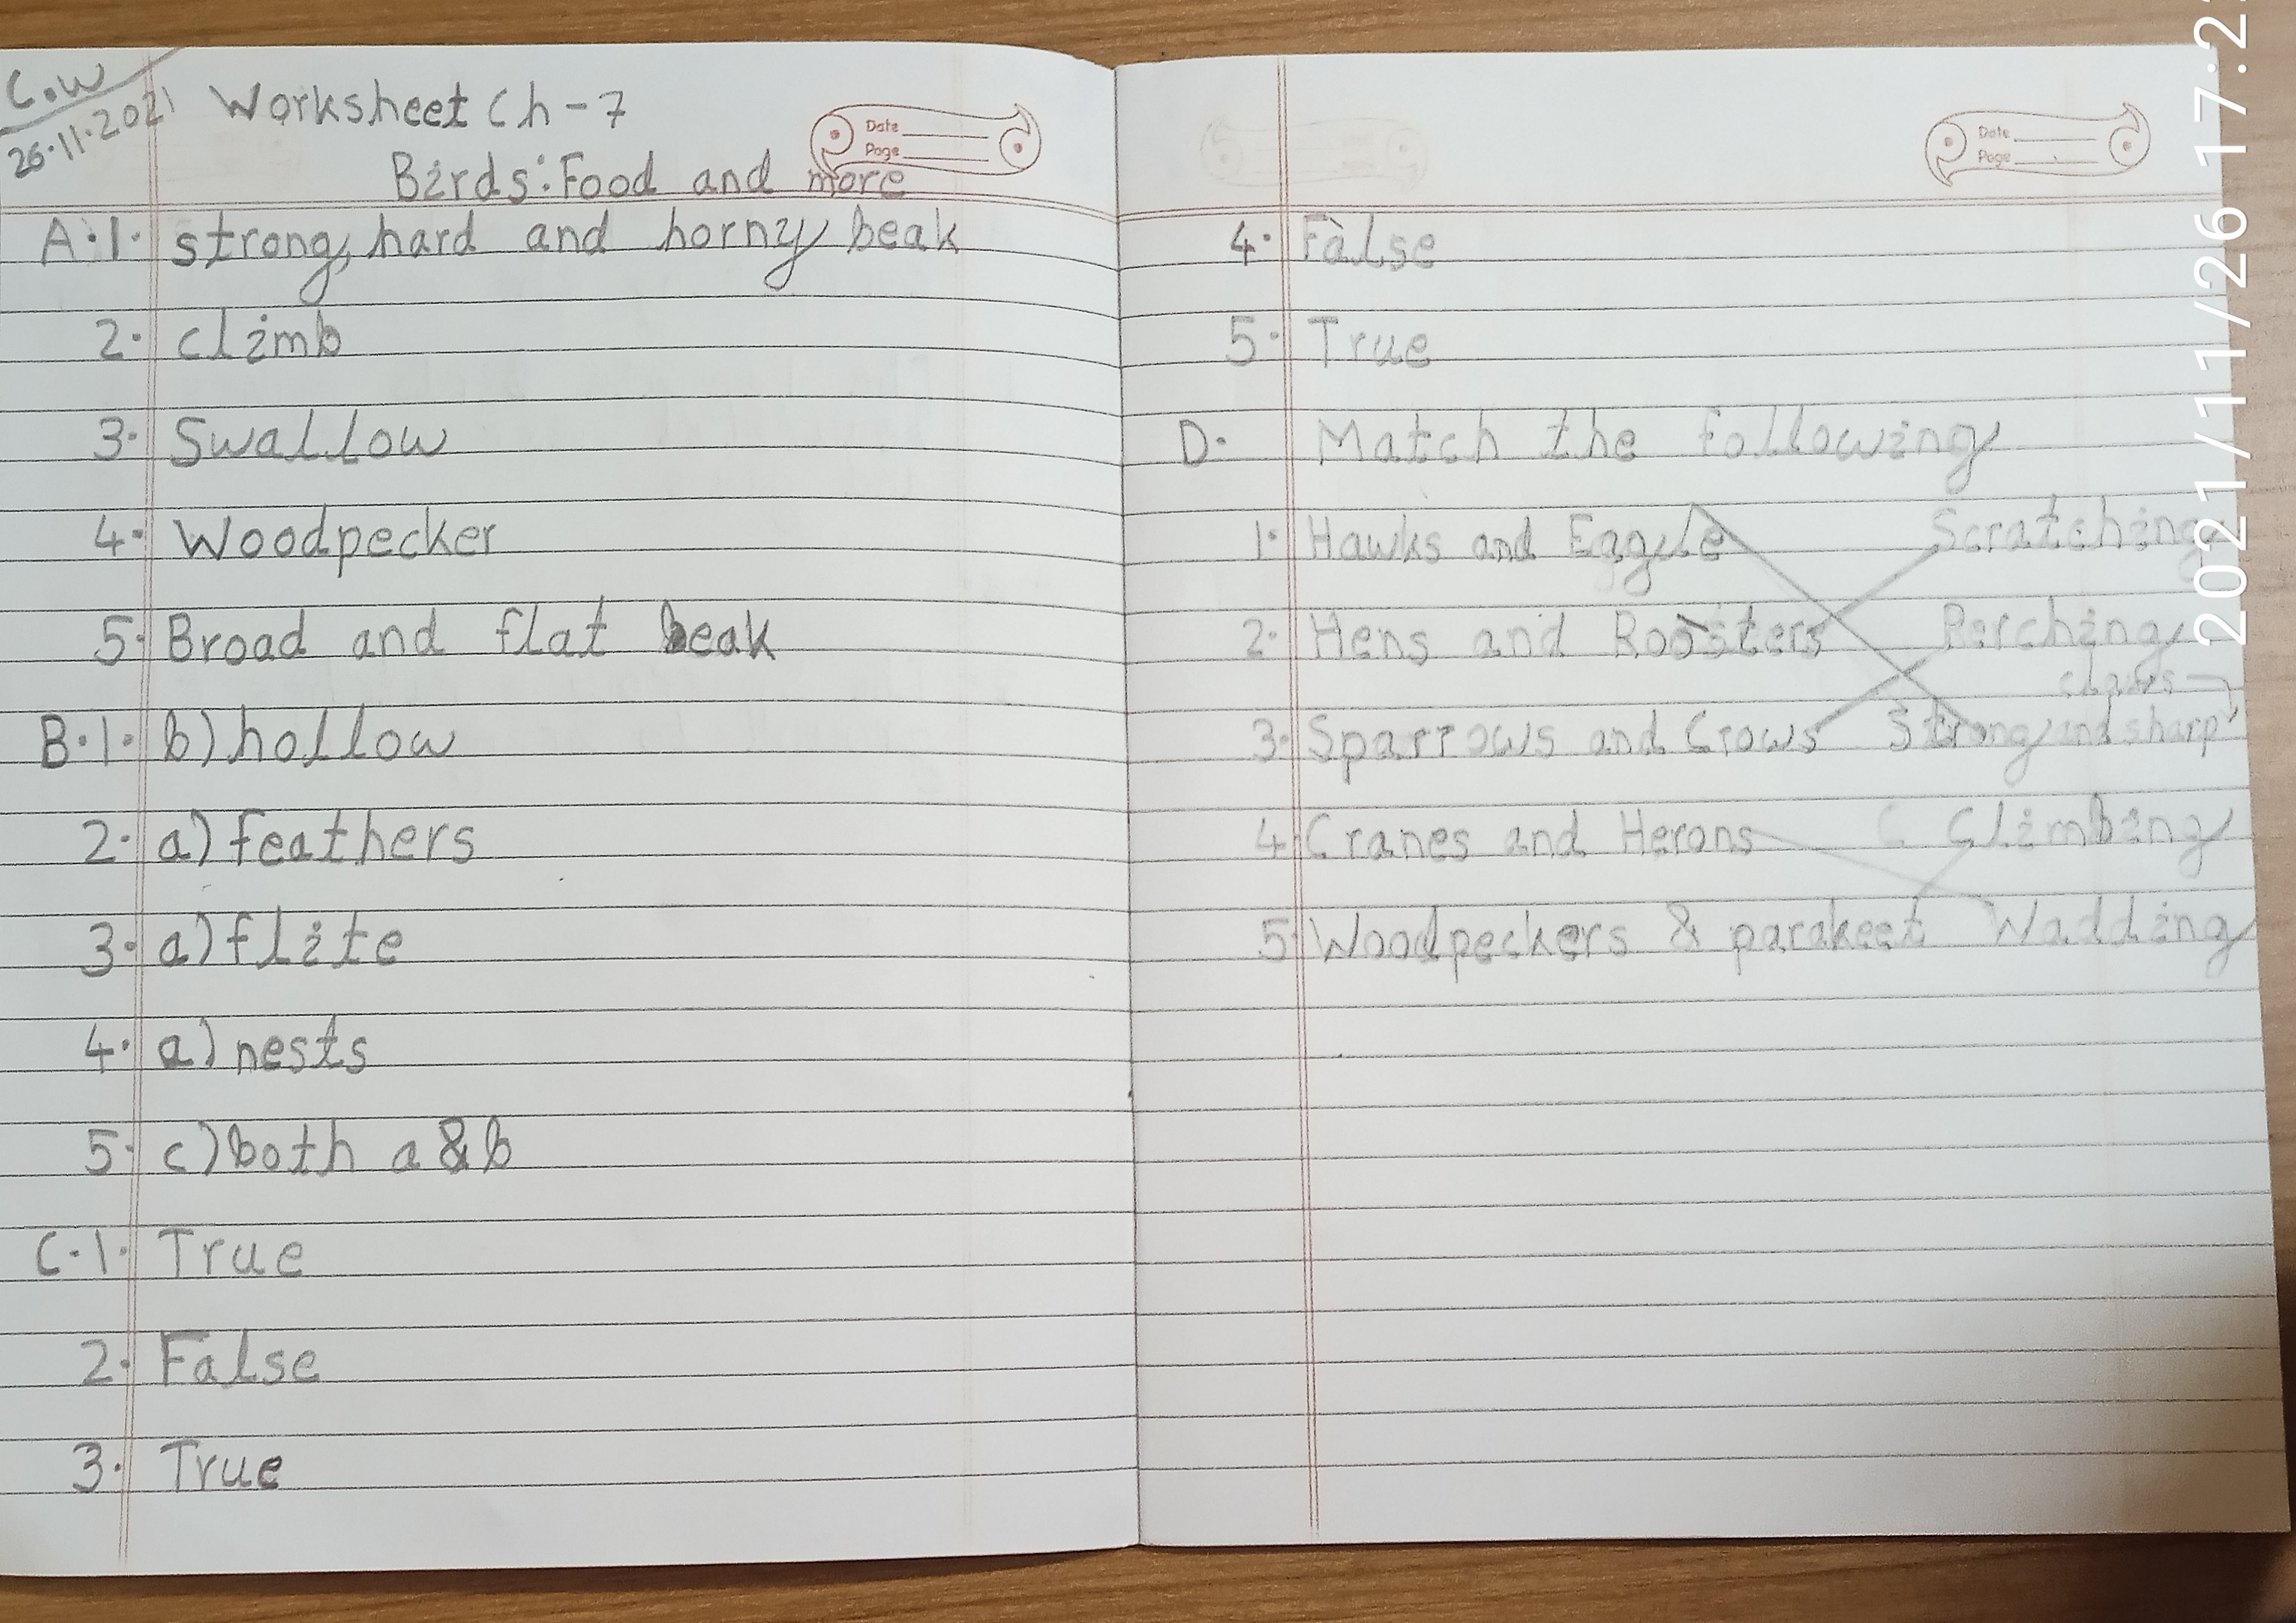 C.W
26.11.2021
Worksheet Ch-7
Date
Page
Birds: Food and more
A.1. strong, hard and horny beak
2. climb
3. Swallow
4. Woodpecker
5. Broad and flat beak
B.1. b) hollow
2. a) feathers
3. a) flite
4. a) nests
5. c) both a & b
C.1. True
2. False
3. True
Date
Page
4. False
5. True
D. Match the following
1. Hawks and Eagle Scratching
2. Hens and Roosters Perching
claws
3. Sparrows and Crows Strong and sharp
4. Cranes and Herons C Climbing
5. Woodpeckers & parakeet Wadding
2021/11/26 17:2